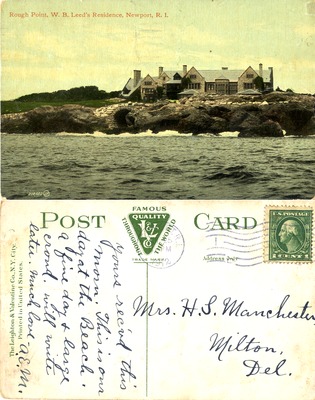 Rough Point, W. B. Leed's Residence, Newport, R. I.
POST CARD
FAMOUS
QUALITY
THROUGHOUT THE WORLD
L&V
TRADE MARK
Address Only.
U.S. POSTAGE
1 CENT 1
The Leighton & Valentine Co. N.Y. City.
Printed in United States.
Yours rec'd this
morn. This is our
day at the Beach.
a fine day & large
crowd. will write
later. much love. A.E.M.
Mrs. H. S. Manchester,
Milton,
Del.